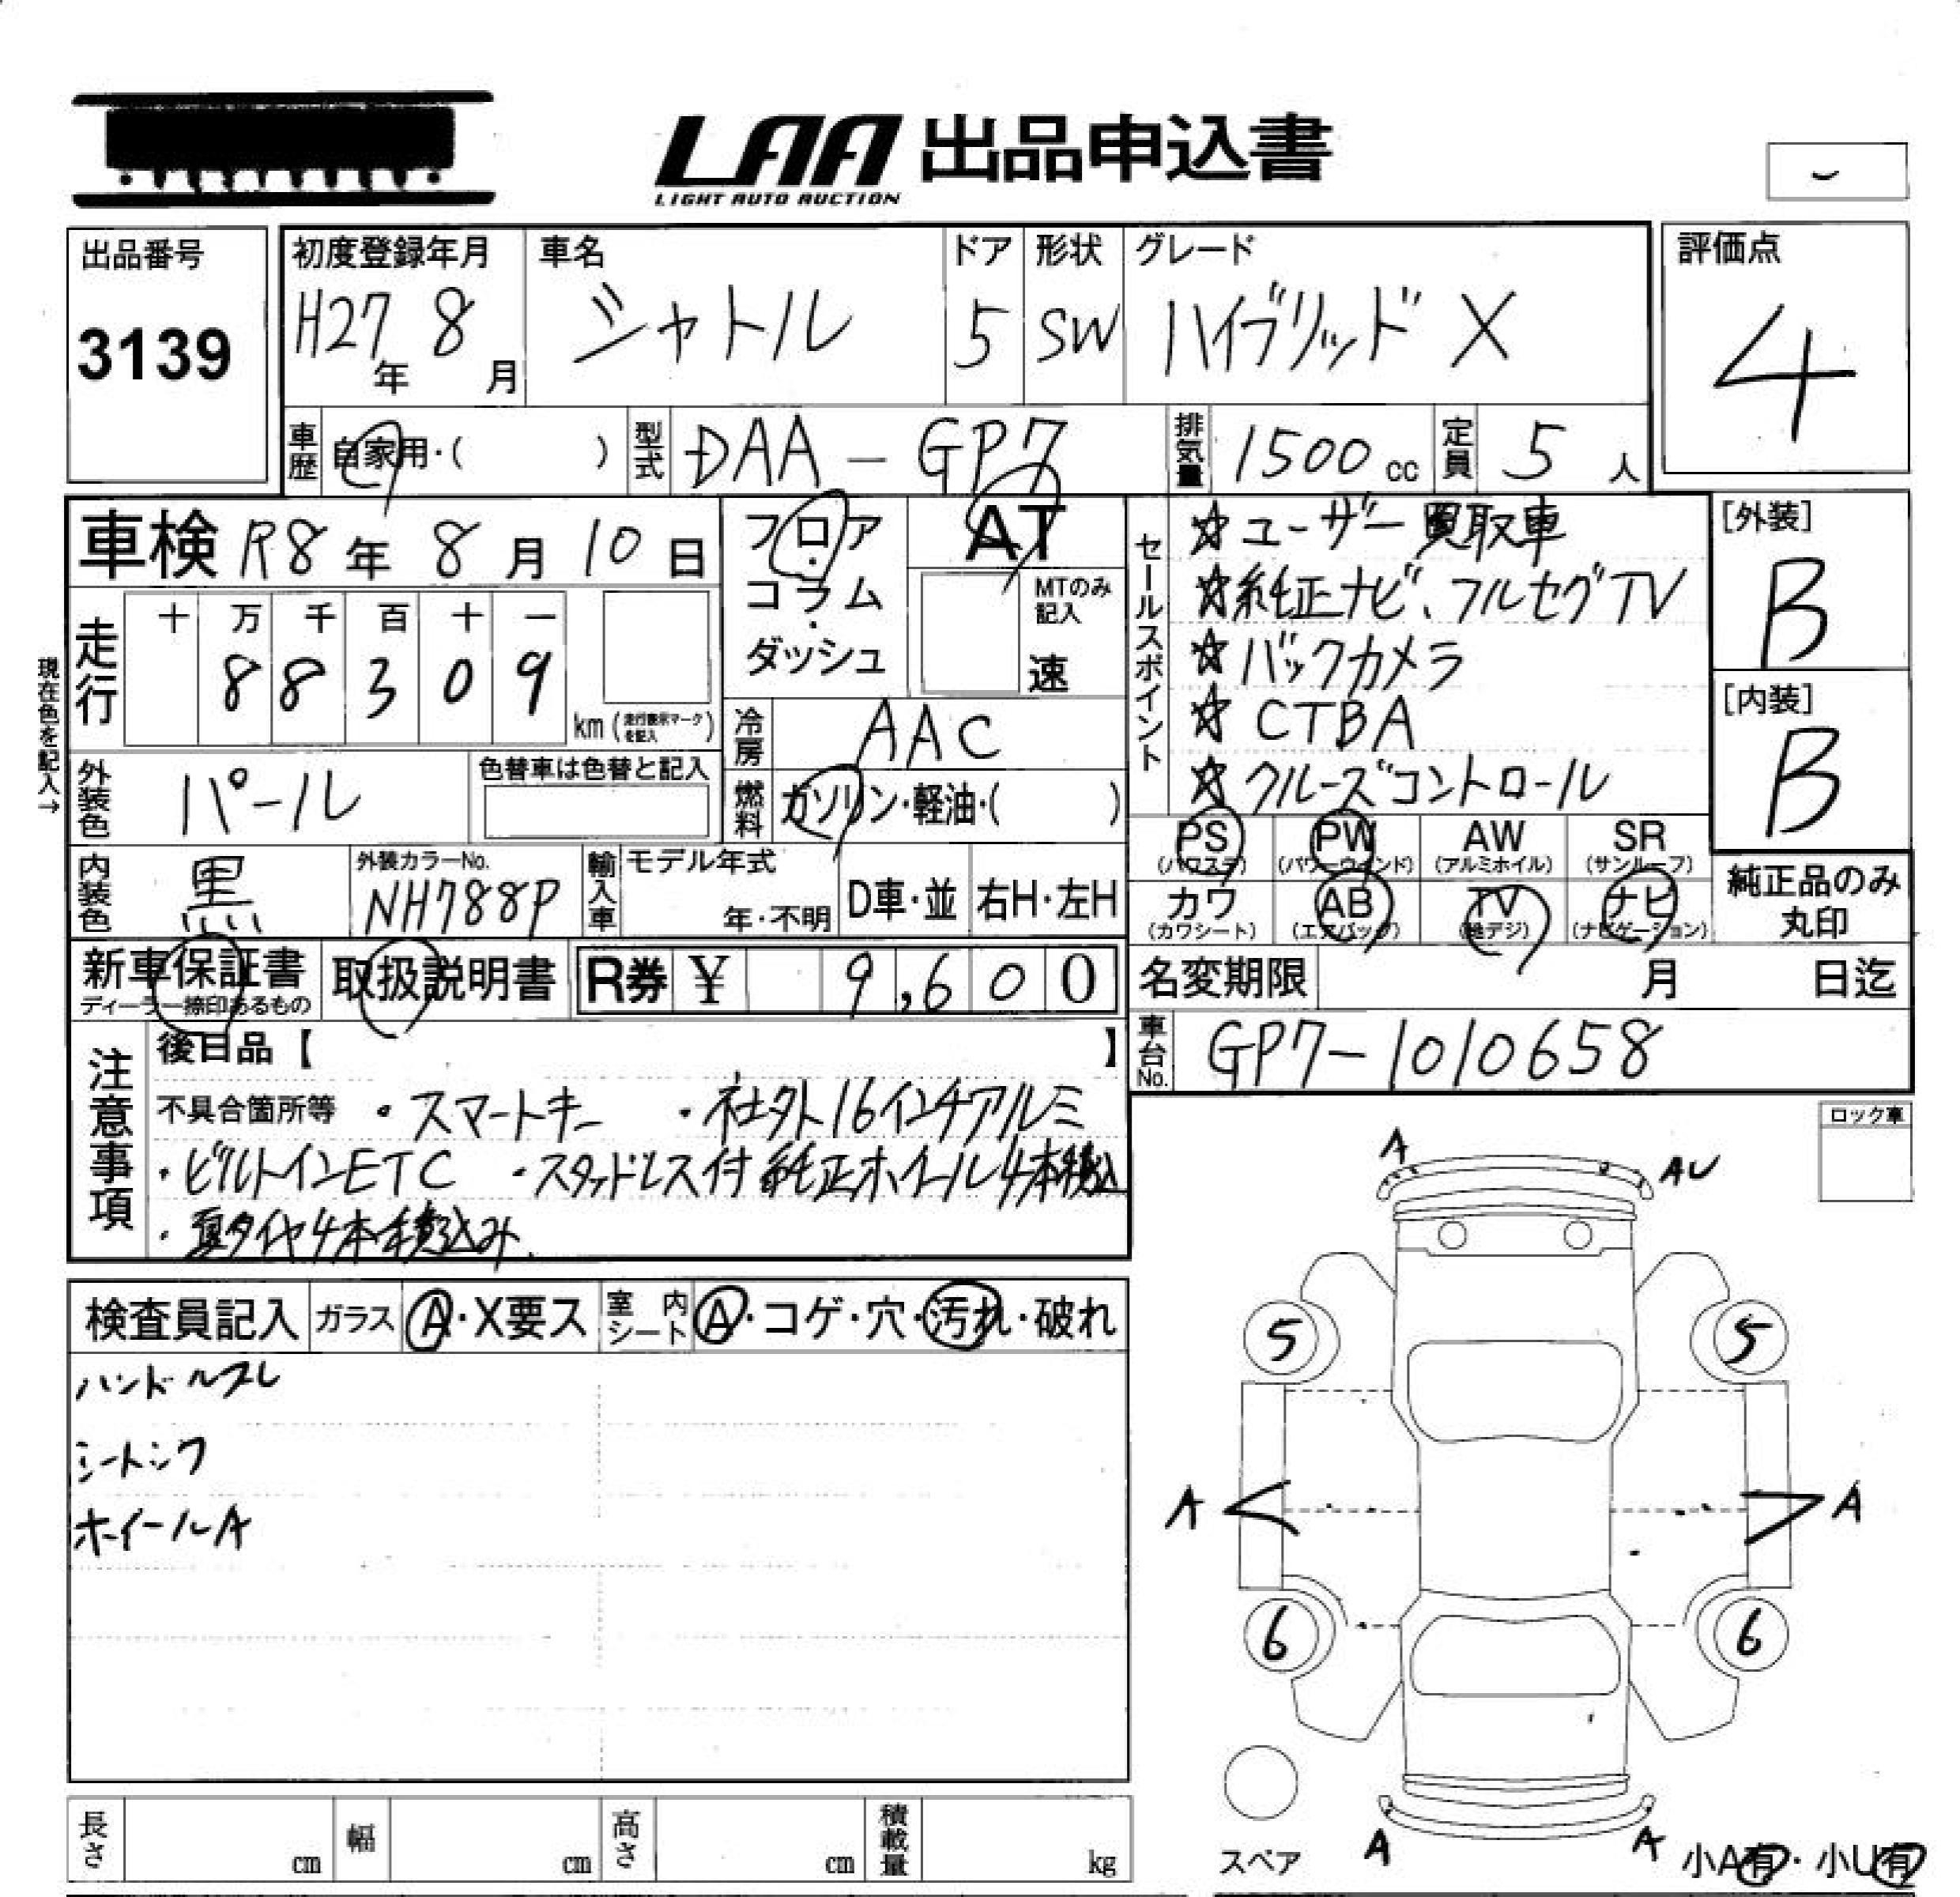 LAA 出品申込書
LIGHT AUTO AUCTION
出品番号
3139
初度登録年月
H27年 8月
車名
シャトル
ドア
5
形状
SW
グレード
ハイブリッド X
評価点
4
車歴 自家用・( )
型式 DAA-GP7
排気量 1500 cc
定員 5 人
車検 R8年 8月 10日
走行
十 万 千 百 十 一
8 8 3 0 9
km (走行表示マークを記入)
現在色を記入→
フロア・コラム・ダッシュ
AT
MTのみ記入
速
冷房 AAC
燃料 ガソリン・軽油・( )
外装色 パール
色替車は色替と記入
内装色 黒
外装カラーNo.
NH788P
輸入車
モデル年式
年・不明
D車・並
右H・左H
セールスポイント
☆ユーザー買取車
☆純正ナビ、フルセグTV
☆バックカメラ
☆CTBA
☆クルーズコントロール
[外装]
B
[内装]
B
PS (パワステ) PW (パワーウィンド) AW (アルミホイル) SR (サンルーフ)
カワ (カワシート) AB (エアバッグ) TV (地デジ) ナビ (ナビゲーション)
純正品のみ丸印
新車保証書
ディーラー捺印あるもの
取扱説明書
R券 ¥ 9,600
名変期限 月 日迄
車台No. GP7-1010658
注意事項
後日品【 】
不具合箇所等 ・スマートキー ・社外16インチアルミ
・ビルトインETC ・スタッドレス付 純正ホイール4本積込
・夏タイヤ4本積込み
ロック車
検査員記入 ガラス A・X要ス 室内シート A・コゲ・穴・汚れ・破れ
ハンドルスレ
シートシワ
ホイールA
A AU
5 5
A A
6 6
A A
スペア
小A有・小U有
長さ cm 幅 cm 高さ cm 積載量 kg